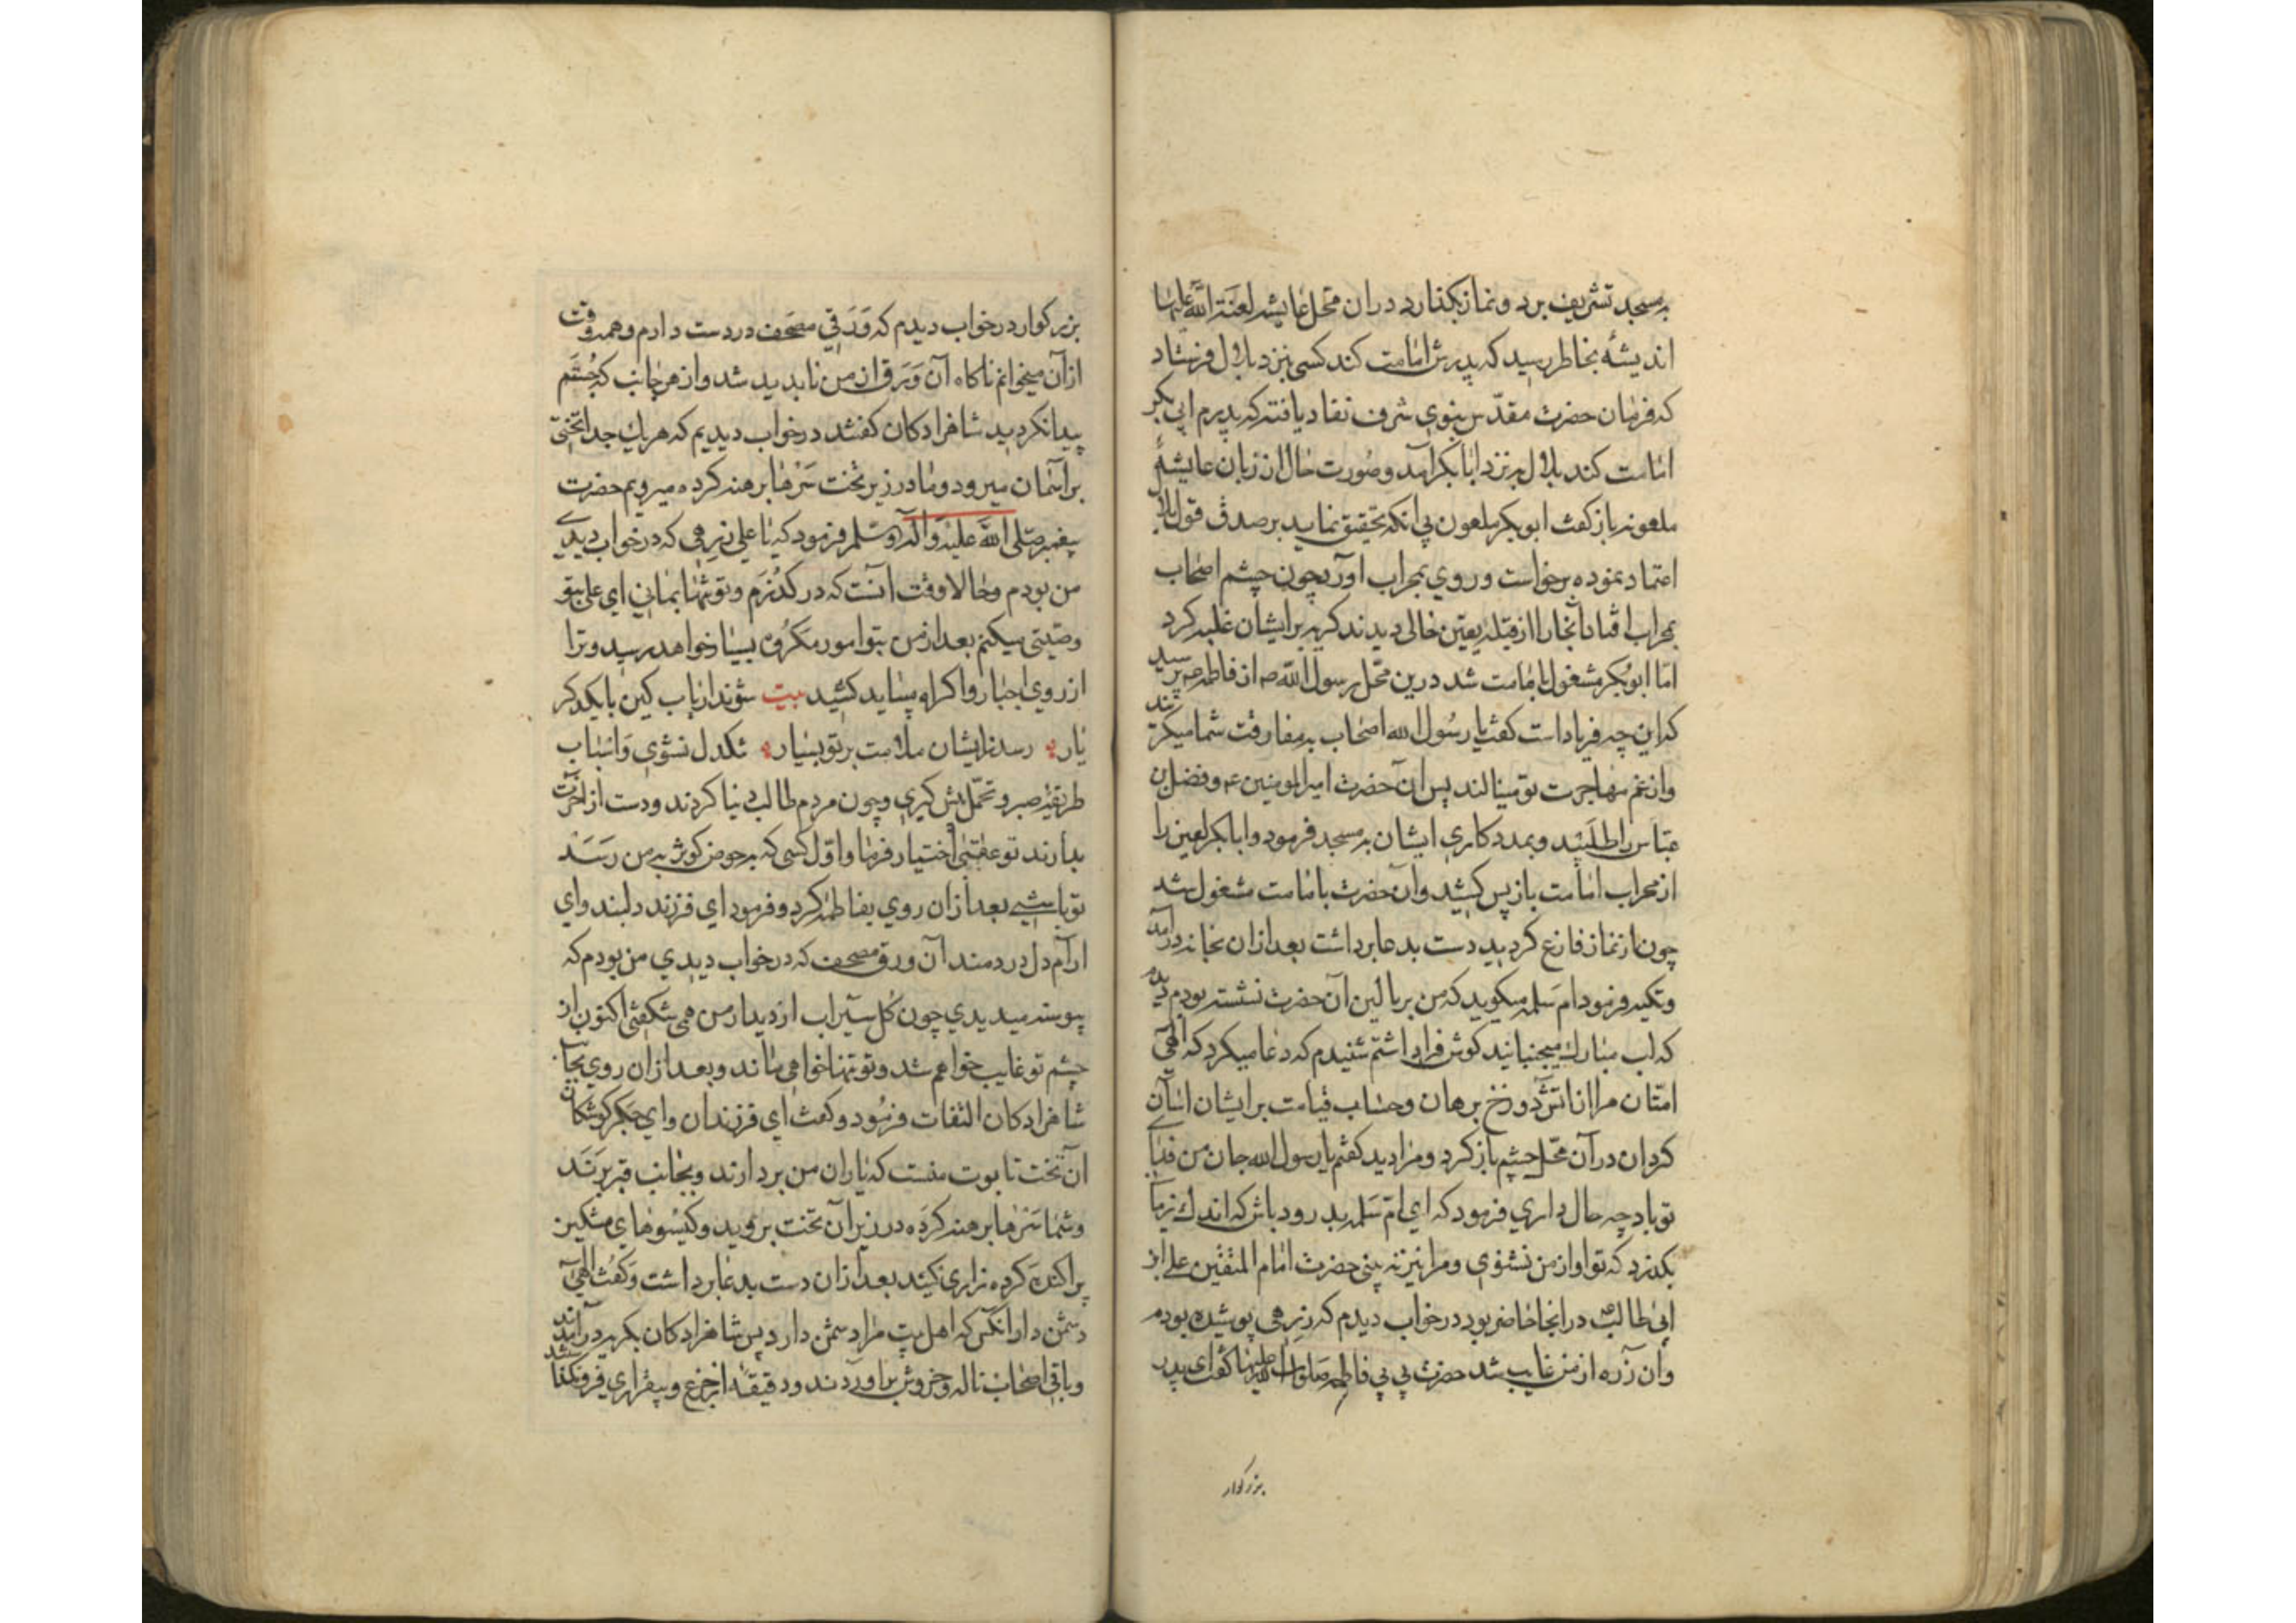 بمسجد تشریف برد ونماز بکذارد دران محل عایشه لعنة الله علیها
اندیشهٔ بخاطر رسید که پدرش امامت کند کسی نزد بلال فرستاد
که فرمان حضرت مقدّس نبوی شرف نفاد یافته که پدرم ابی بکر
امامت کند بلال بنزد ابابکر آمد وصورت حال از زبان عایشهٔ
ملعونه باز کفت ابوبکر ملعون بی انکه تحقیق نماید بر صدق قول بلال
اعتماد نموده برخواست وروی بمحراب آورد چون چشم اصحاب
بمحراب افتاد آنجا را از قبلهٔ یقین خالی دیدند کریه بر ایشان غلبه کرد
امّا ابوبکر مشغول بامامت شد درین محل رسول الله صه از فاطمه پرسید
که این چه فریاد است کفت یا رسول الله اصحاب بمفارقت شما میکریند
واز غم مهاجرت تو مینالند پس آن حضرت امیرالمومنین ع وفضل بن
عبّاس را طلبید وبمددکاری ایشان بمسجد فرمود وابابکر لعین را
از محراب امامت باز پس کشید وآن حضرت بامامت مشغول شد
چون از نماز فارغ کردید دست بدعا برداشت بعد ازان بخانه درآمد
وتکیه فرمود ام سلمه میکوید که من بر بالین آن حضرت نشسته بودم دیدم
که لب مبارك میجنبانید کوش فرا داشتم شنیدم که دعا میکرد که الهی
امّتان مرا از اتش دوزخ برهان وحساب قیامت بر ایشان آسان
کردان در آن محل چشم باز کرد ومرا دید کفتم یا رسول الله جان من فدای
تو باد چه حال داری فرمود که ای امّ سلمه بدرود باش که اندك زمانی
بکذرد که تو اواز من نشنوی ومرا نیز نه بینی حضرت امام المتقین علی ابن
ابی طالب در انجا حاضر بود در خواب دیدم که زرهی پوشیده بودم
وآن زره از من غایب شد حضرت بی بی فاطمه صلوات الله علیها کفت ای پدر
بزرکوار
بزرکوار در خواب دیدم که ورقی مصحف در دست دارم وهمه وقت
ازآن میخوانم ناکاه آن ورق از من ناپدید شد واز هر جانب که جستم
پیدا نکردید شاهزادکان کفتند در خواب دیدیم که هر یك جدا تختی
بر آسمان میرود وما در زیر تخت سرها برهنه کرده میرویم حضرت
پیغمبر صلی الله علیه وآله وسلم فرمود که یا علی زرهی که در خواب دیدی
من بودم وحالا وقت آنست که در کذرم وتو تنها بمانی ای علی بتو
وصیتی میکنم بعد از من بتو امور مکروه بسیار خواهد رسید وترا
از روی اجبار واکراه بباید کشید بیت شوند ارباب کین با یکدکر
یار رسد زایشان ملامت بر تو بسیار تنکدل نشوی واسباب
طریقهٔ صبر وتحمّل پیش کیری وچون مردم طالب دنیا کردند ودست از آخرت
بدارند تو عقبی اختیار فرما واوّل کسی که بر حوض کوثر به من رسد
تو باشی بعد ازان روی بفاطمه کرد وفرمود ای فرزند دلبند وای
آرام دل دردمند آن ورق مصحف که در خواب دیدی من بودم که
پیوسته میدیدی چون کل سیراب از دیدار من همی شکفتی اکنون از
چشم تو غایب خواهم شد وتو تنها خواهی ماند وبعد ازان روی بجانب
شاهزادکان التفات فرمود وکفت ای فرزندان وای جکرکوشکان
آن تخت تابوت منست که یاران من بردارند وبجانب قبر برند
وشما سرها برهنه کرده در زیر آن تخت بروید وکیسوهای مشکین
پراکنده کرده زاری کنید بعد ازان دست بدعا برداشت وکفت الهی
دشمن دار آنکس که اهل بیت مرا دشمن دارد پس شاهزادکان بکریه درآمدند
وباقی اصحاب ناله وخروش براوردند ودقیقه از جزع وبیقراری فرو نکذاشتند